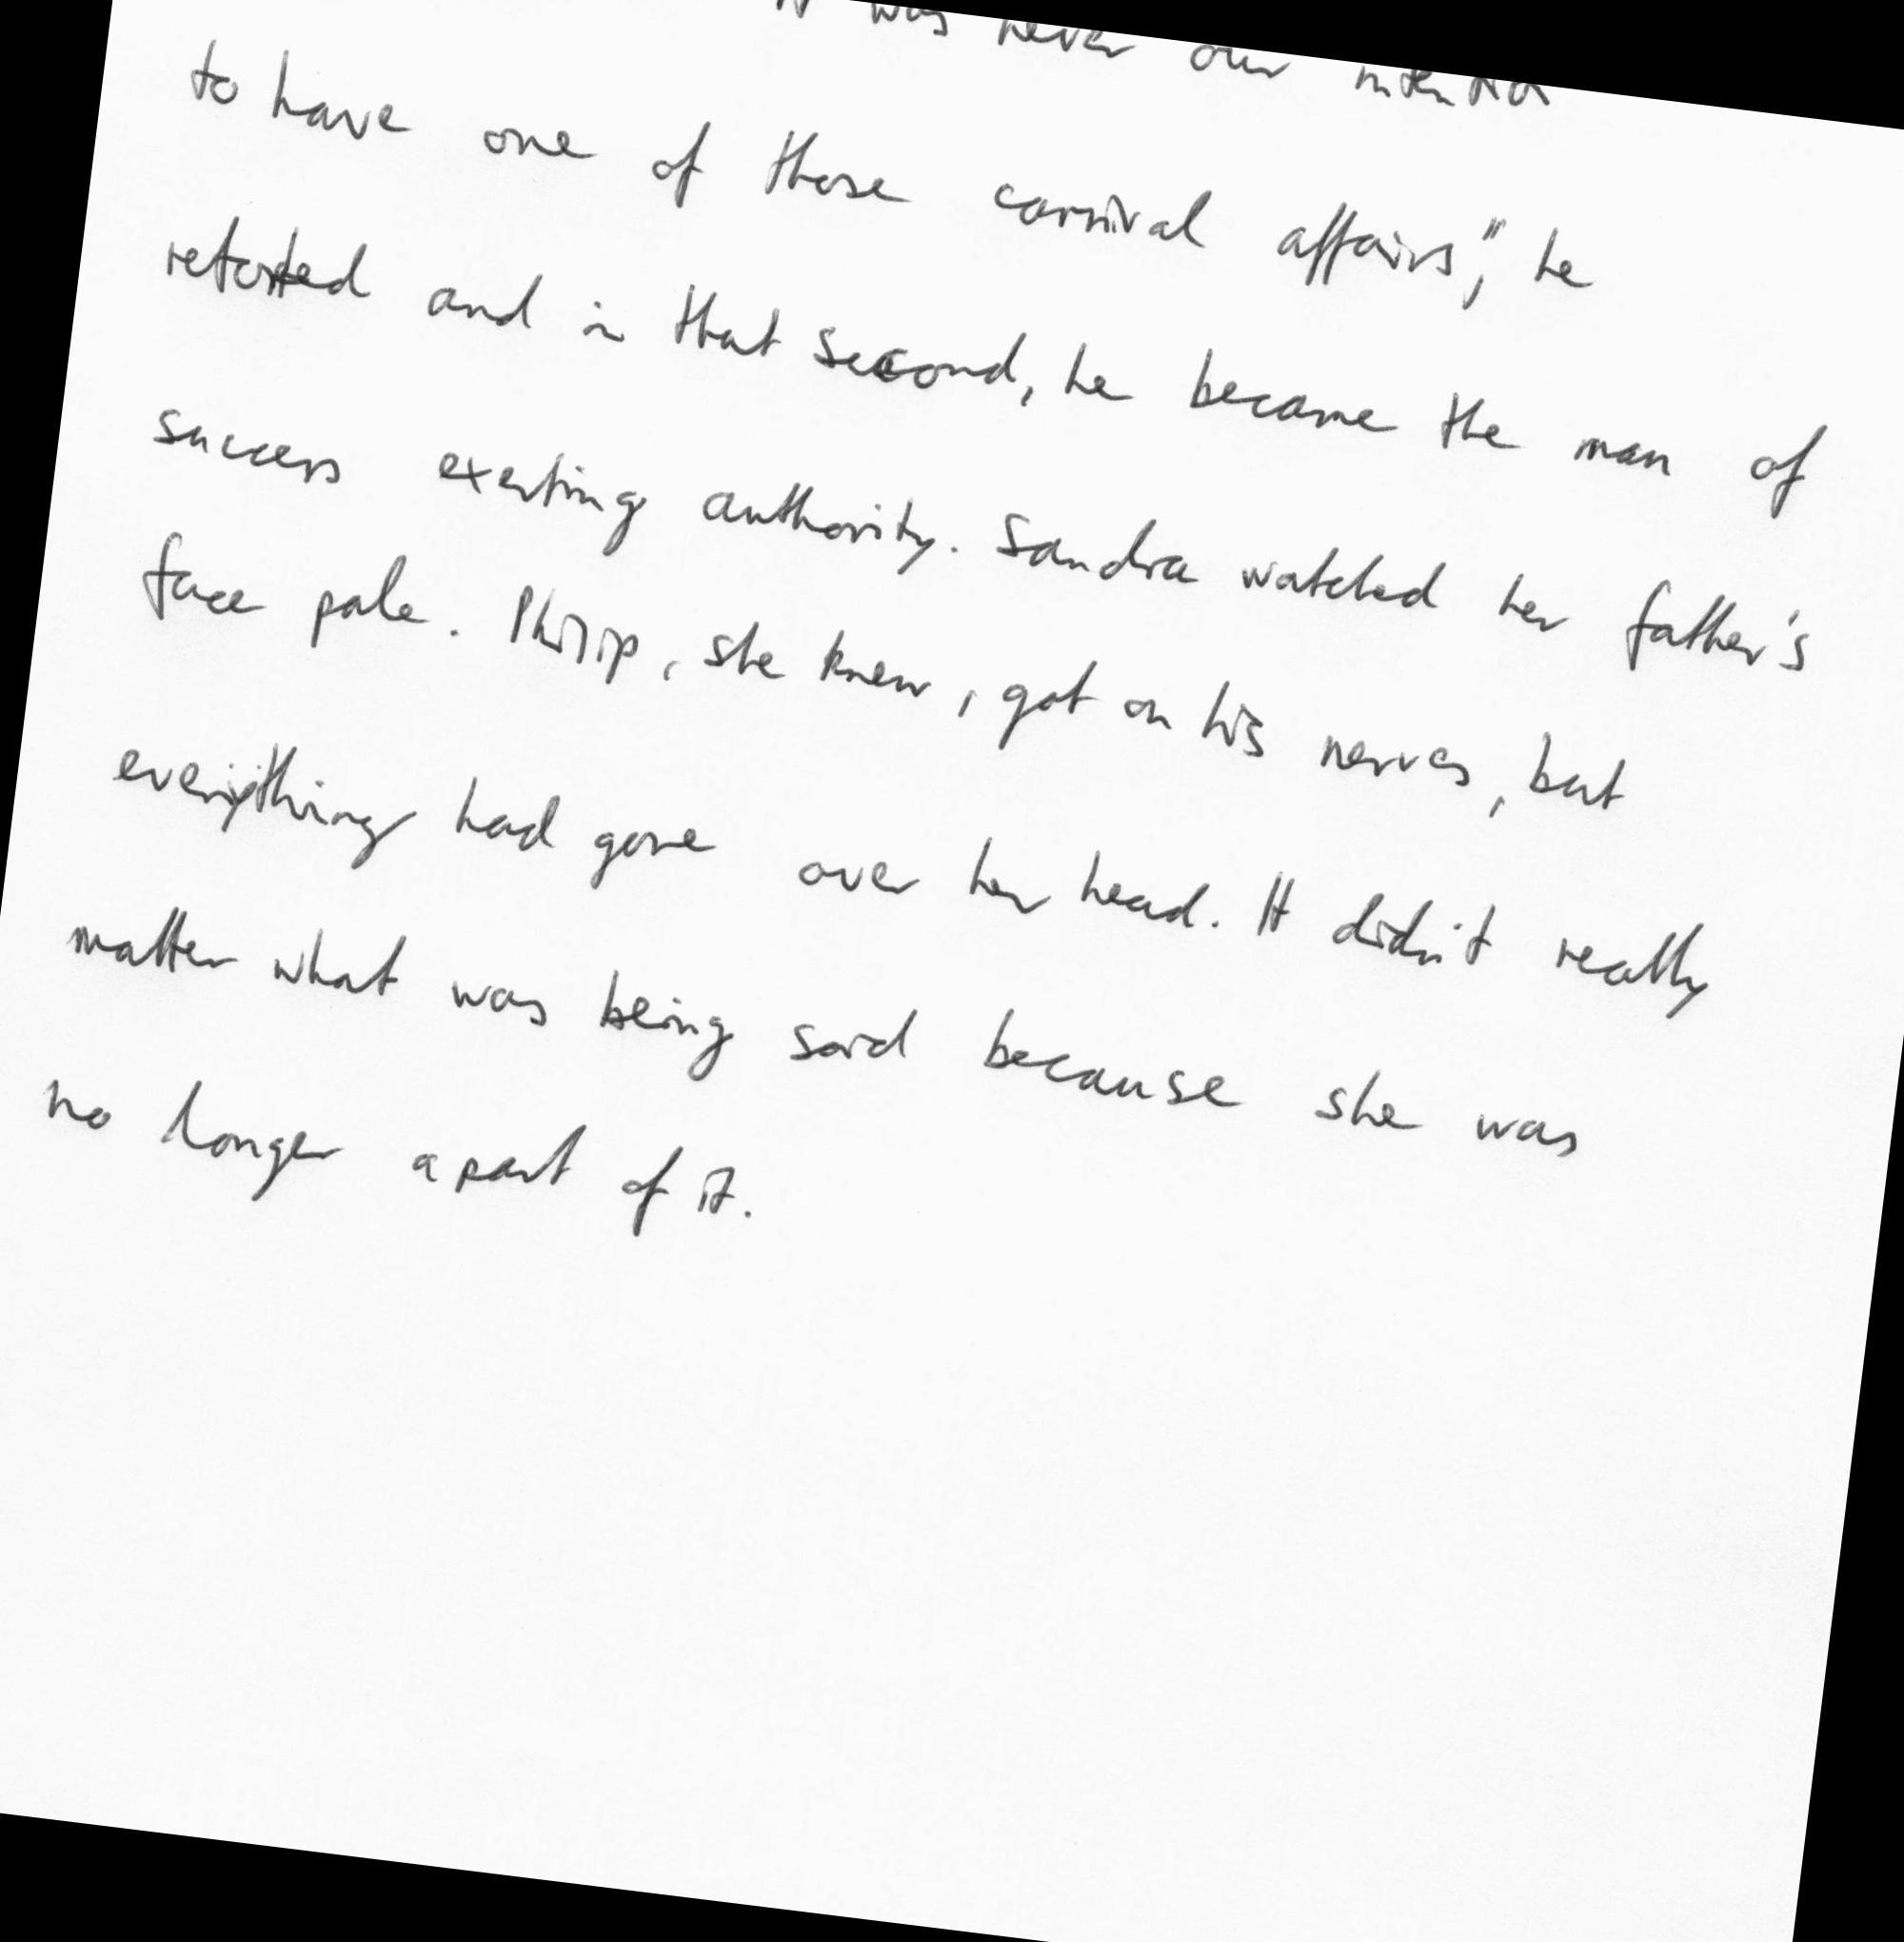 was never our
to have one of those carnival affairs," he
retorted and in that second, he became the man of
success exerting authority. Sandra watched her father's
face pale. Philip, she knew, got on his nerves, but
everything had gone over her head. It didn't really
matter what was being said because she was
no longer a part of it.